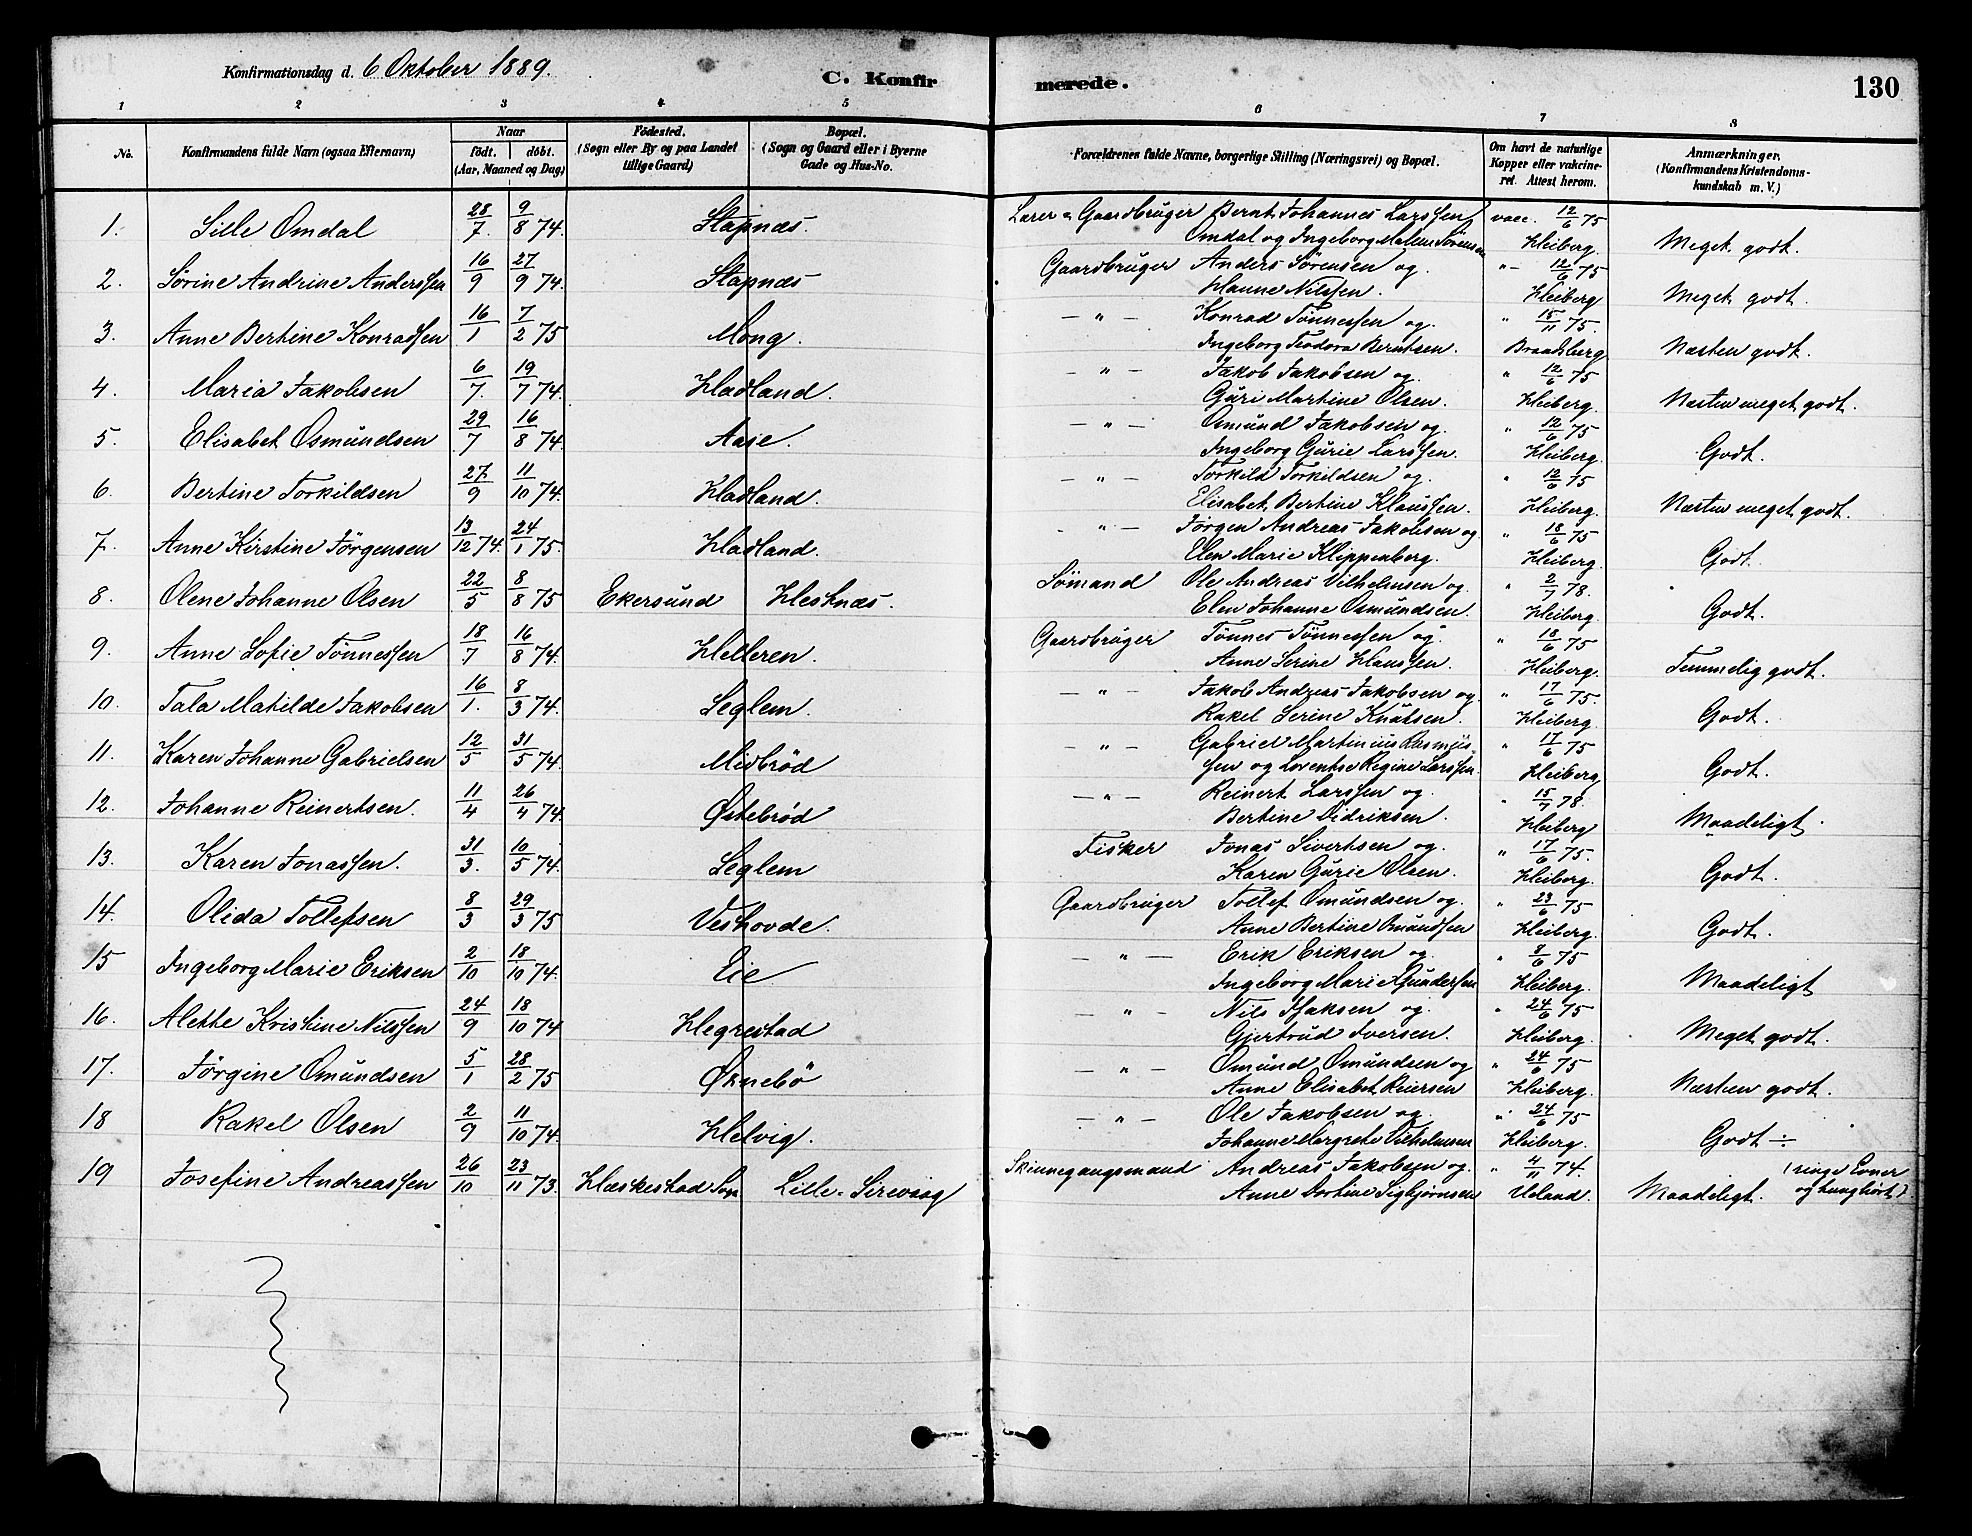 Konfirmationsdag d. 6 Oktober 1889.
C. Konfirmerede.
130
1 2 3 4 5 6 7 8
No. Konfirmandens fulde Navn (ogsaa Efternavn) Naar födt. döbt. (Aar, Maaned og Dag) Födested. (Sogn eller By og paa Landet tillige Gaard) Bopæl. (Sogn og Gaard eller i Byerne Gade og Hus-No. Forældrenes fulde Navne, borgerlige Stilling (Næringsvei) og Bopæl. Om havt de naturlige Kopper eller vakcineret. Attest herom. Anmærkninger. (Konfirmandens Kristendomskundskab m. V.)
1. Sille Omdal 28/7. 9/8 74. Stapnæs. Lærer & Gaardbruger Bernt Johannes Larssen vacc. 12/6 75
Omdal og Ingeborg Malene Sörensen Heiberg. Meget godt.
2. Sörine Andrine Anderssen 16/9 27/9 74. Stapnæs Gaardbruger Anders Sörensen og "- 12/6 75
Hanne Nilssen. Heiberg Meget godt.
3. Anne Bertine Konradsen 16/1 7/2 75 Mong. - " - Konrad Tönnessen og. " 15/11 75.
Ingeborg Teodora Berntsen. Brandsberg Næsten godt.
4. Maria Jakobsen 6/7. 19/7 74. Hadland. - " - Jakob Jakobsen og " 12/6 75
Guri Martine Olsen. Heiberg. Næsten meget godt.
5. Elisabet Osmundsen 29/7 16/8 74. Aase. - " - Omund Jakobsen og. " 12/6 75
Ingeborg Gurie Larssen. Heiberg. Godt.
6. Bertine Torkildsen 27/9 11/10 74. Hadland. - " - Torkild Torkildsen og. " 12/6 75
Elisabet Bertine Klaussen. Heiberg. Næsten meget godt.
7. Anne Kirstine Jörgensen 13/12 74. 24/1 75. Hadland. " - Jörgen Andreas Jakobsen og " 18/6 75
Elen Marie Klippenberg. Heiberg. Godt.
8. Olene Johanne Olsen 22/5 8/8 75 Ekersund Hestnæs. Sömand Ole Andreas Vilhelmsen og " 2/7 78.
Elen Johanne Osmundsen. Heiberg. Godt.
9. Anne Sofie Tönnessen 18/7 16/8 74. Helleren. Gaardbruger Tönnes Tönnessen og " 18/6 75
Anne Serine Hanssen. Heiberg. Temmelig godt.
10. Tala Matilde Jakobsen 16/1. 8/3 74. Seglem. - " - Jakob Andreas Jakobsen og " 17/6 75.
Rakel Serine Knutsen. Heiberg. Godt.
11. Karen Johanne Gabrielsen 12/5 31/5 74. Midbrød - " - Gabriel Martinius Rasmus- " 17/6 75
sen og Lorentse Regine Larssen Heiberg Godt.
12. Johanne Reinertsen. 11/4 26/4 74. Østebrød - " - Reinert Larssen og. " 15/7 78.
Bertine Didriksen. Heiberg Maadeligt.
13. Karen Jonassen. 31/3. 10/5 74. Seglem Fisker Jonas Sivertsen og. " 17/6 75.
Karen Gurie Olsen. Heiberg. Godt.
14. Olida Tollefsen 8/3 29/3 75 Veshovde. Gaardbruger Tollef Omundsen og. " 23/6 75
Anne Bertine Omundsen Heiberg. Godt.
15 Ingeborg Marie Eriksen 2/10 18/10 74. Eie - " - Erik Eriksen og " 8/6 75
Ingeborg Marie Gundersen Heiberg. Maadeligt
16. Alette Kristine Nilssen 24/9 18/10 74 Hegrestad - " - Nils Isaksen og. " 24/6 75
Gjertrud Iversen. Heiberg Meget godt.
17. Jörgine Omundsen 5/1 28/2 75 Ørnebö - " - Omund Omundsen og " 24/6 75
Anne Elisabet Reiersen Heiberg. Næsten godt.
18 Rakel Olsen 2/9 11/10 74. Helvig. - " - Ole Jakobsen og. " 24/6 75
Johanne Margrete Vilhelmsen Heiberg. Godt ÷
19 Josefine Andreassen 26/10 23/11 73. Hæskestad Sogn Lille-Sirevaag Skinnegangsmand Andreas Jakobsen og. " 4/11 74. (ringe Evner
Anne Dortine Sigbjörnsen Ueland. Maadeligt. og tunghört)